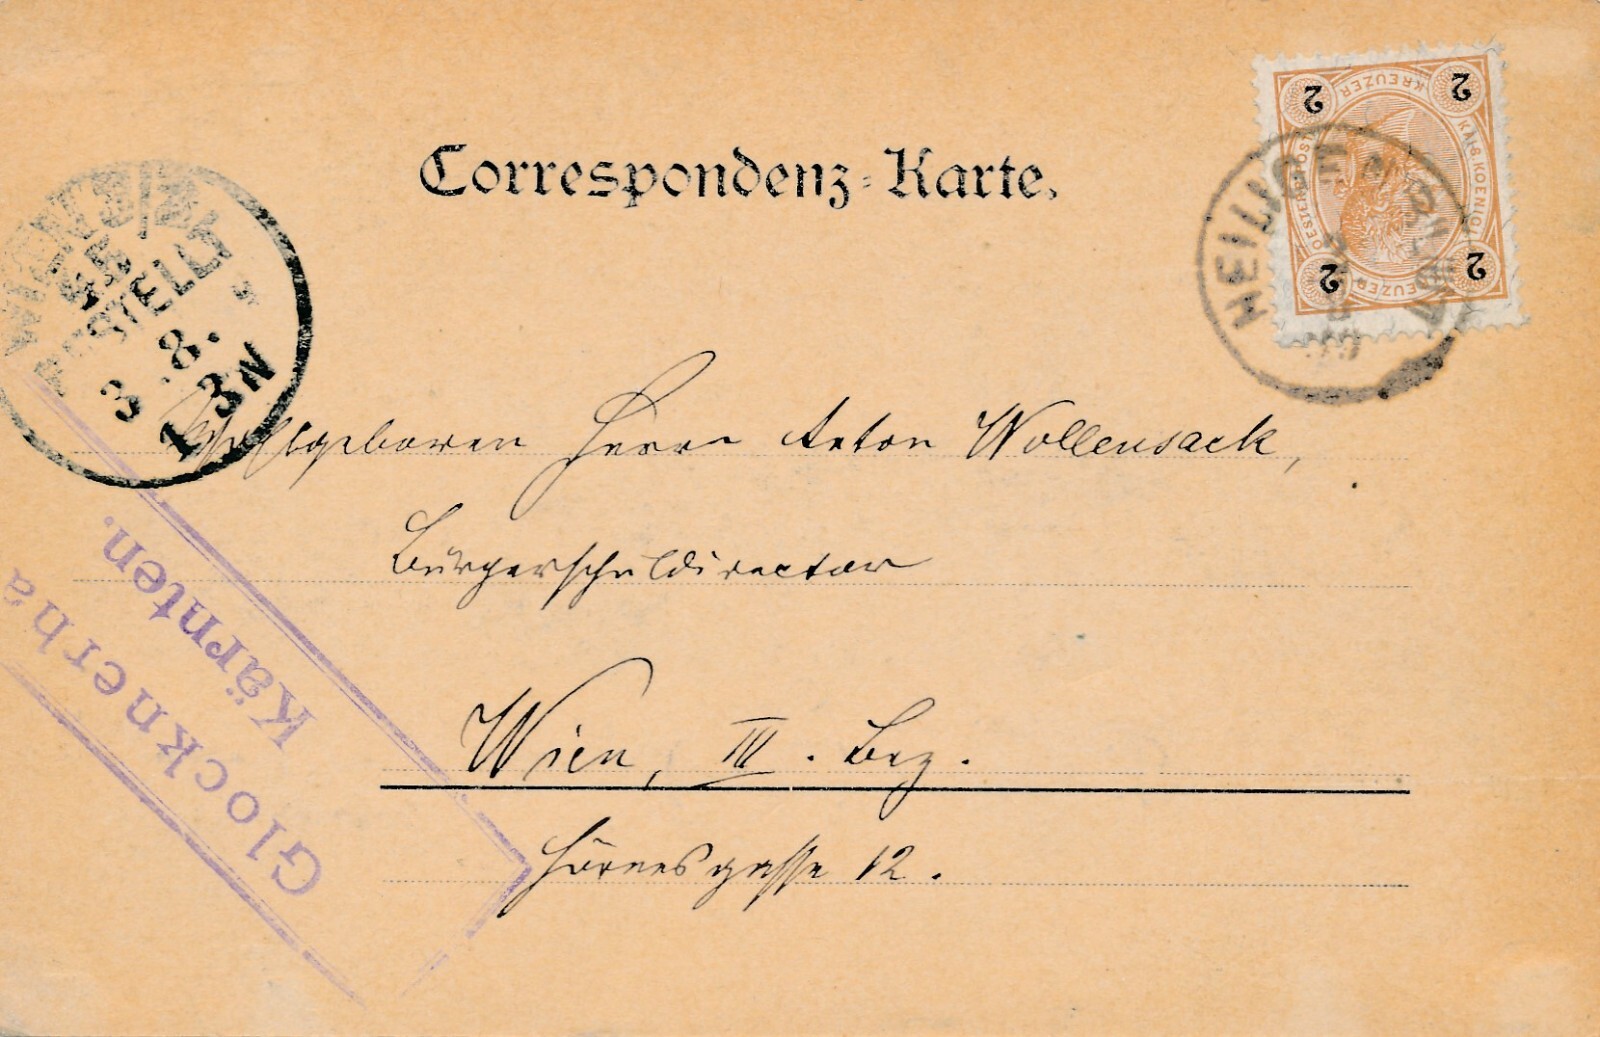 Correspondenz-Karte.
2 2 2 2
KREUZER
KAIS. KOENIGL
OESTERR. POST
KREUZER
HEILIGE
BESTELLT
3 . 8.
1-3N
Wohlgeboren Herrn Anton Wollensack,
Bürgerschuldirector
Wien, III. Bez.
Hörnesgasse 12.
Glocknerha
Kärnten.